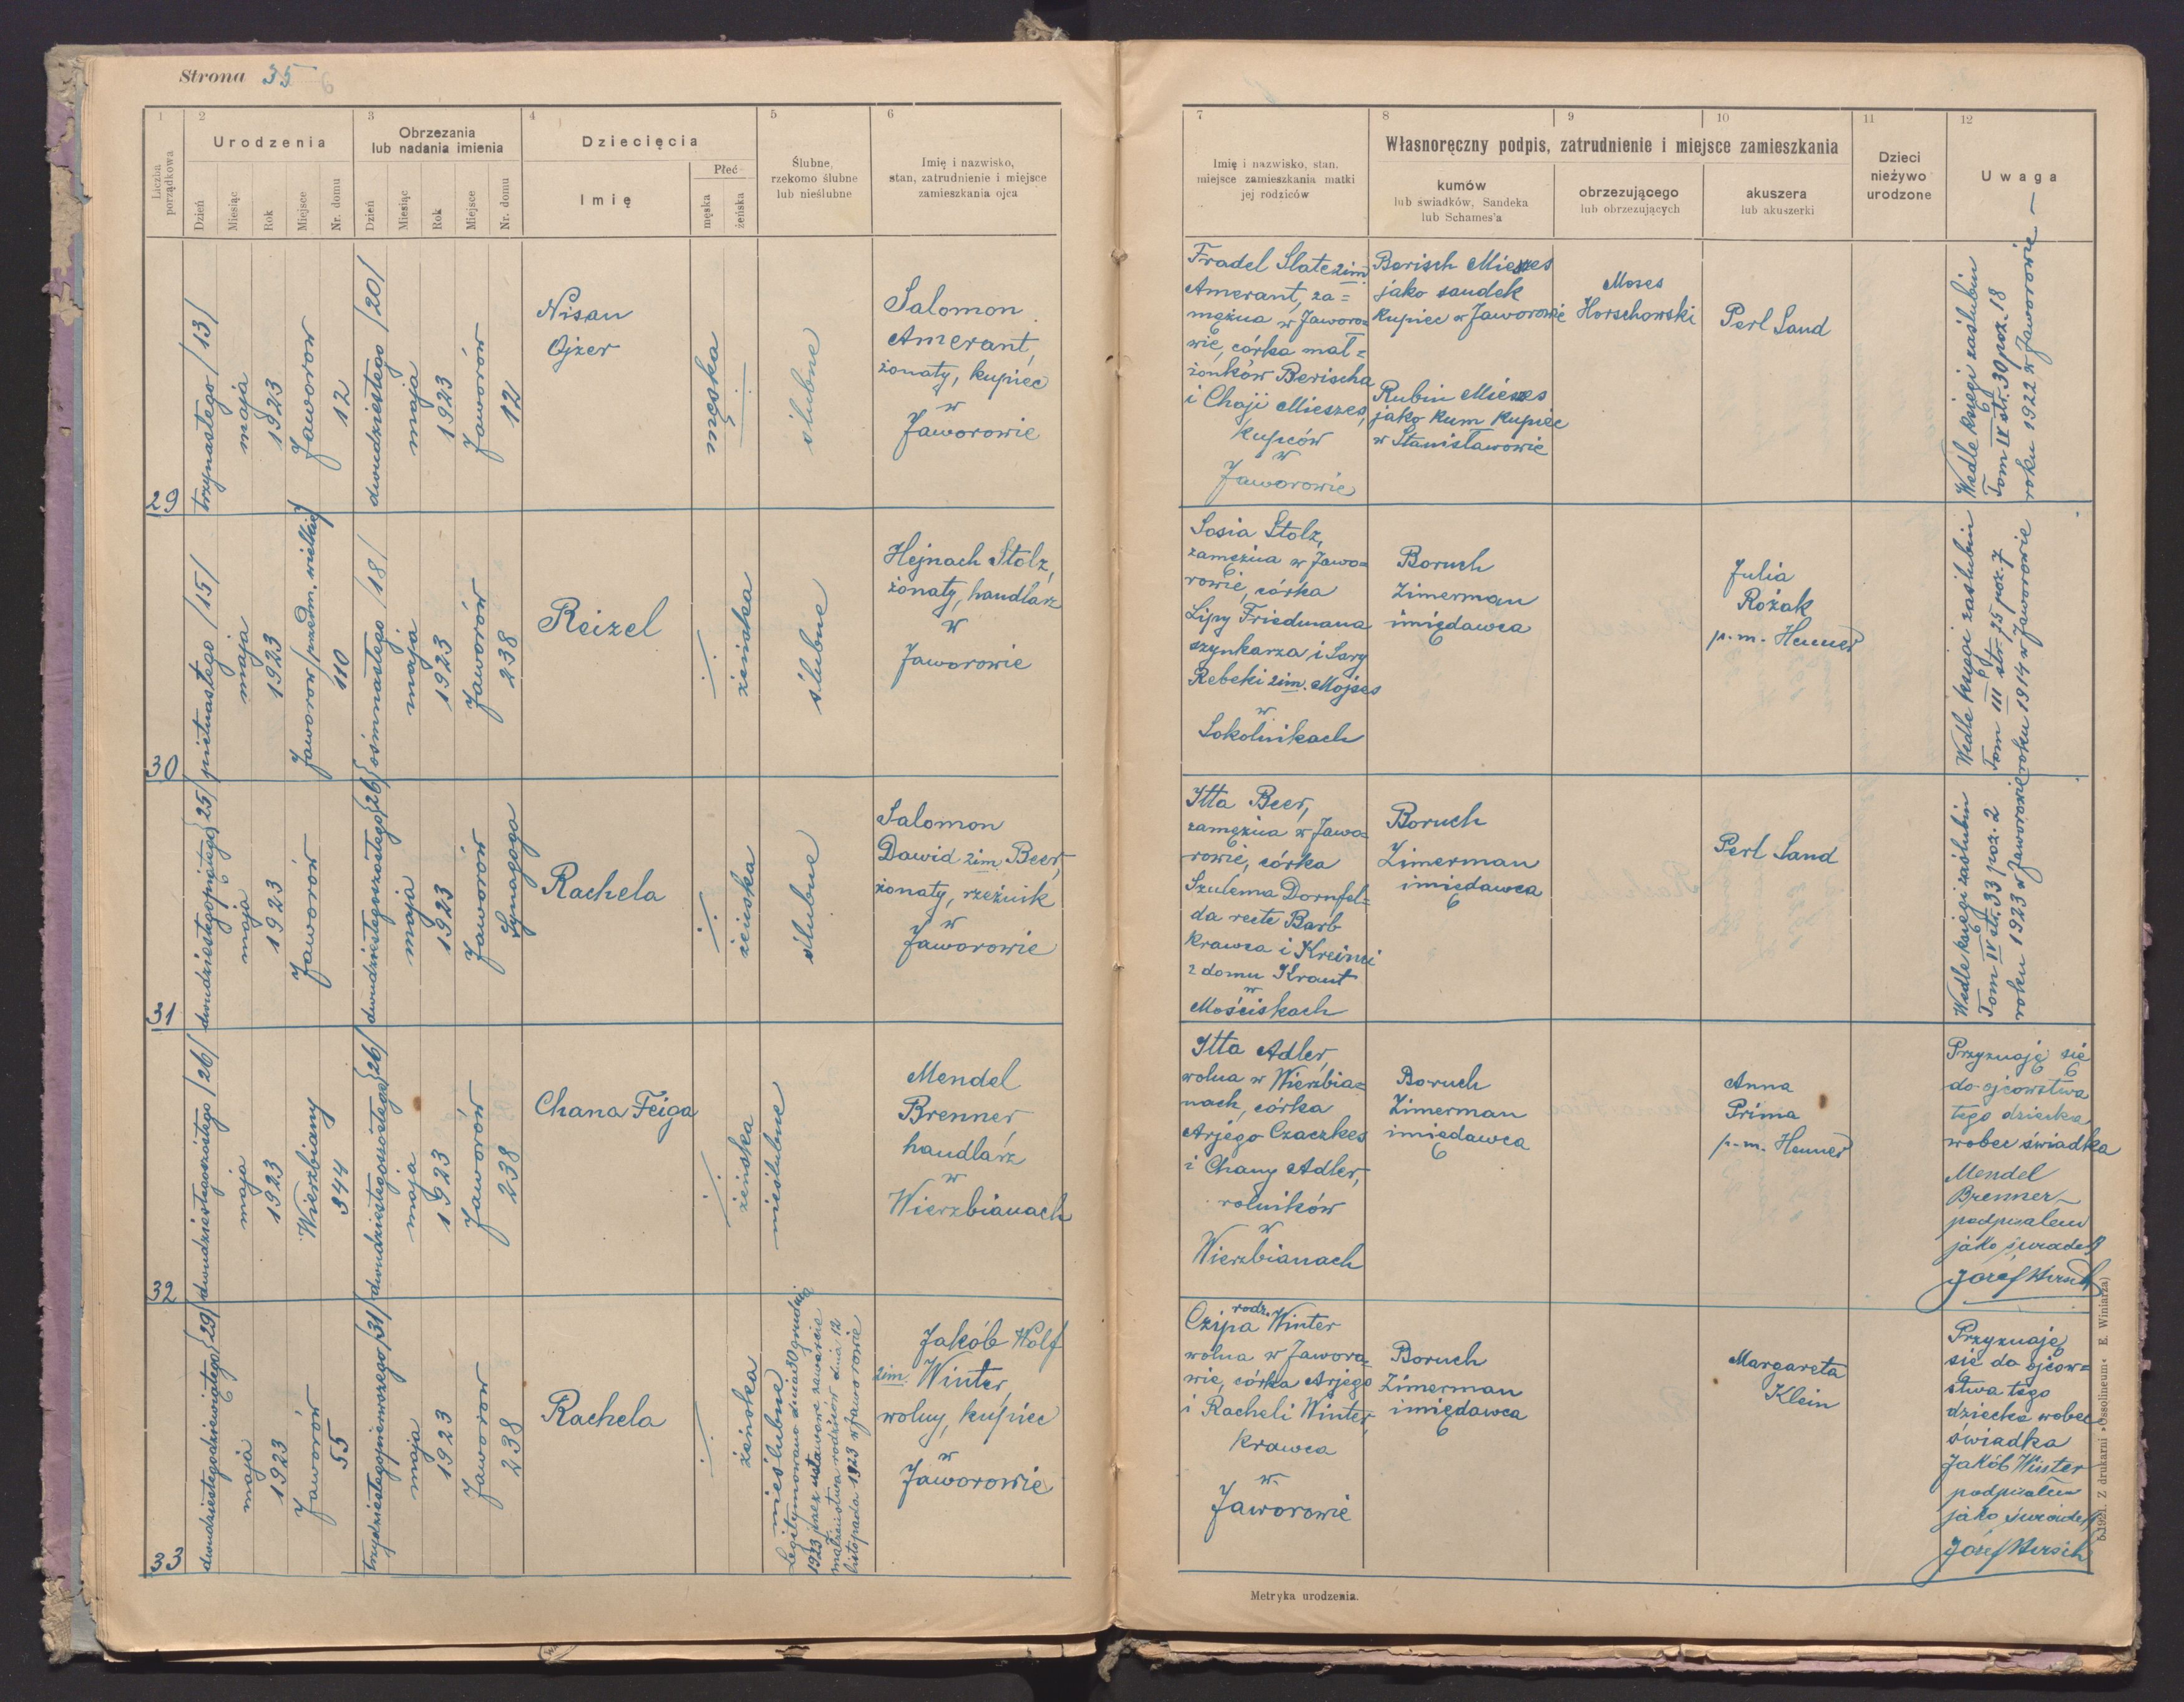 Strona 35
1
2
3
4
5
6
Liczba porządkowa
Urodzenia
Obrzezania
lub nadania imienia
Dziecięcia
Ślubne,
rzekomo ślubne
lub nieślubne
Imię i nazwisko,
stan, zatrudnienie i miejsce
zamieszkania ojca
Dzień
Miesiąc
Rok
Miejsce
Nr. domu
Dzień
Miesiąc
Rok
Miejsce
Nr. domu
Imię
Płeć
męska
żeńska
7
8
9
10
11
12
Imię i nazwisko, stan,
miejsce zamieszkania matki
jej rodziców
Własnoręczny podpis, zatrudnienie i miejsce zamieszkania
kumów
lub świadków, Sandeka
lub Schames'a
obrzezującego
lub obrzezujących
akuszera
lub akuszerki
Dzieci
nieżywo
urodzone
Uwaga
29
trzynastego /13/
maja
1923
Jaworow
12
dwudziestego /20/
maja
1923
Jaworów
12
Nisan
Ojzer
męska
ślubne
Salomon
Amerant,
żonaty, kupiec
w
Jaworowie
Fradel Slate 2im
Amerant, za=
mężna w Jaworo=
wie, córka mał=
żonków Berischa
i Chaji Mieszes,
kupców
w
Jaworowie
Berisch Mieszes
jako sandek
kupiec w Jaworowie
Rubin Mieszes
jako kum kupiec
w Stanisławowie
Moses
Horschowski
Perl Sand
Wedle księgi zaślubin
Tom IV str. 30 poz. 18
roku 1922 w Jaworowie —
30
piętnastego /15/
maja
1923
Jaworow /przedm. wielkie/
110
ośmnastego /18/
maja
1923
Jaworów
238
Reizel
żeńska
ślubne
Hejnach Stolz,
żonaty, handlarz
w
Jaworowie
Sosia Stolz,
zamężna w Jawo=
rowie, córka
Lipy Friedmana
szynkarza i Sary
Rebeki 2im. Mojzes
w
Sokolnikach
Boruch
Zimerman
imiędawca
Julia
Rożak
p. m. Henner
Wedle księgi zaślubin
Tom III str. 75 poz. 7
roku 1914 w Jaworowie
31
dwudziestegopiątego /25/
maja
1923
Jaworów
dwudziestegoszóstego /26/
maja
1923
Jaworów
Synagoga
Rachela
żeńska
ślubne
Salomon
Dawid 2im Beer,
żonaty, rzeźnik
w
Jaworowie
Itta Beer,
zamężna w Jawo=
rowie, córka
Szulema Dornfel=
da recte Barb
krawca i Kreimi
z domu Kraut
w
Mościskach
Boruch
Zimerman
imiędawca
Perl Sand
Wedle księgi zaślubin
Tom IV str. 33 poz. 2
roku 1923 w Jaworowie
32
dwudziestegoszóstego /26/
maja
1923
Wierzbiany
344
dwudziestegoszóstego /26/
maja
1923
Jaworów
238
Chana Feiga
żeńska
nieślubne
Mendel
Brenner
handlarz
w
Wierzbianach
Itta Adler,
wolna w Wierzbia=
nach, córka
Arjego Czaczkes
i Chany Adler,
rolników
w
Wierzbianach
Boruch
Zimerman
imiędawca
Anna
Prima
p. m. Henner
Przyznaję się
do ojcowstwa
tego dziecka
wobec świadka
Mendel
Brenner
podpisałem
jako świadek
Józef Hirsch
33
dwudziestegodziewiątego /29/
maja
1923
Jaworów
55
trzydziestegopierwszego /31/
maja
1923
Jaworow
238
Rachela
żeńska
nieślubne
Legitymowano dnia 30 grudnia
1923 przez ustawowe zawarcie
małżeństwa rodziców dnia 12
listopada 1923 w Jaworowie
Jakób Wolf
2im. Winter,
wolny, kupiec
w
Jaworowie
Czipa rodz. Winter
wolna w Jaworo=
wie, córka Arjego
i Racheli Winter,
krawca
w
Jaworowie
Boruch
Zimerman
imiędawca
Margareta
Klein
Przyznaję
się do ojcow=
stwa tego
dziecka wobec
świadka
Jakób Winter
podpisałem
jako świadek
Józef Hirsch
Metryka urodzenia.
b.1921. Z drukarni »Ossolineum« E. Winiarza)